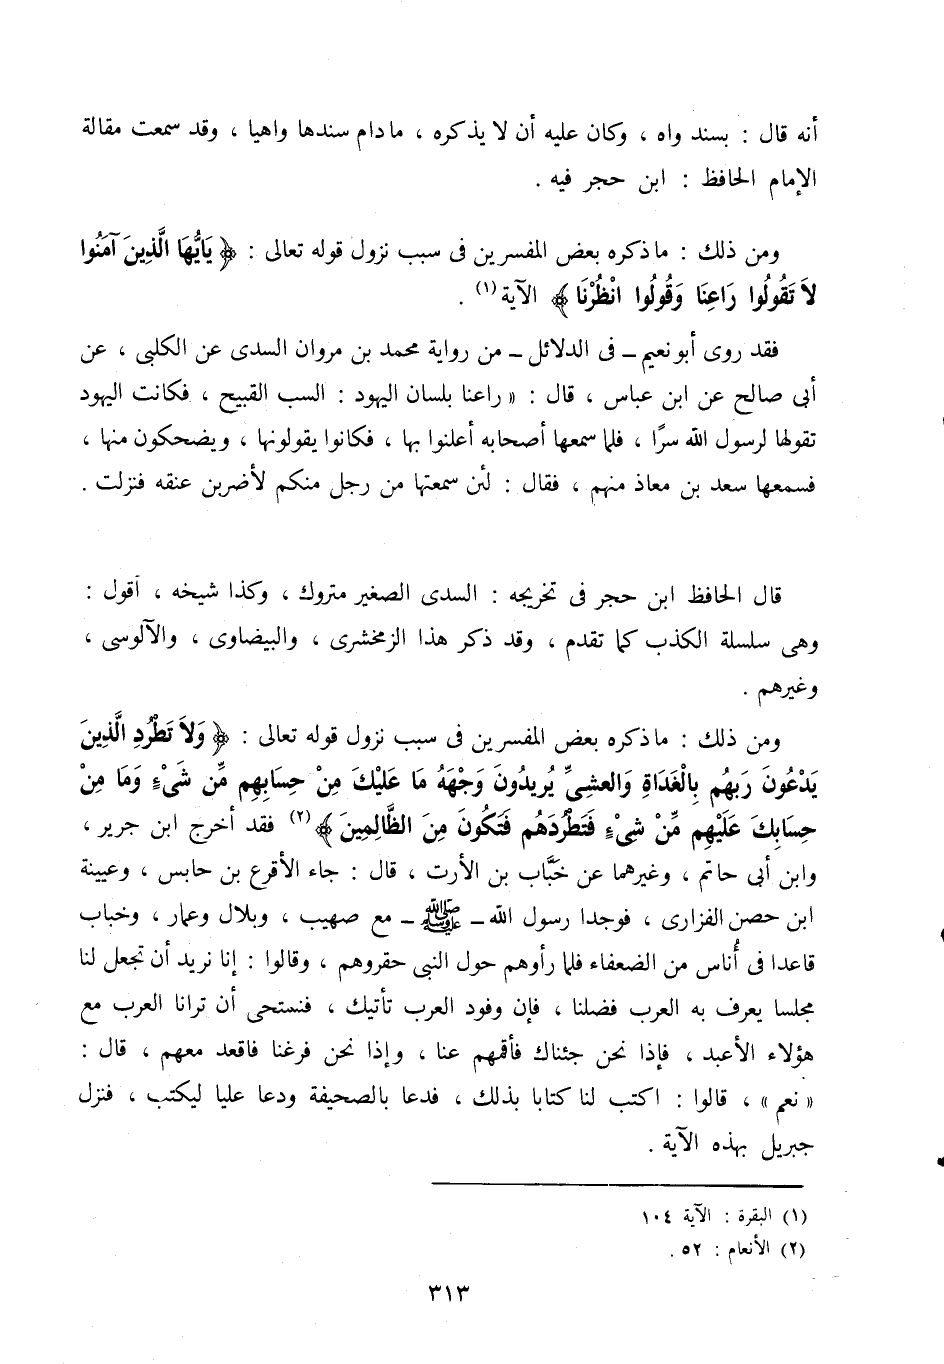 أنه قال : بسند واه ، وكان عليه أن لا يذكره ، مادام سندها واهيا ، وقد سمعت مقالة
الإمام الحافظ : ابن حجر فيه .
ومن ذلك : ماذكره بعض المفسرين فى سبب نزول قوله تعالى : ﴿ يَايُّهَا الَّذِينَ آمَنُوا
لاَ تَقُولُوا رَاعِنَا وَقُولُوا انْظُرْنَا ﴾ الآية (١) .
فقد روى أبو نعيم ــ فى الدلائل ــ من رواية محمد بن مروان السدى عن الكلبى ، عن
أبى صالح عن ابن عباس ، قال : « راعنا بلسان اليهود : السب القبيح ، فكانت اليهود
تقولها لرسول الله سرًا ، فلما سمعها أصحابه أعلنوا بها ، فكانوا يقولونها ، ويضحكون منها ،
فسمعها سعد بن معاذ منهم ، فقال : لئن سمعتها من رجل منكم لأضربن عنقه فنزلت .
قال الحافظ ابن حجر فى تخريجه : السدى الصغير متروك ، وكذا شيخه ، أقول :
وهى سلسلة الكذب كما تقدم ، وقد ذكر هذا الزمخشرى ، والبيضاوى ، والآلوسى ،
وغيرهم .
ومن ذلك : ماذكره بعض المفسرين فى سبب نزول قوله تعالى : ﴿ وَلاَ تَطْرُدِ الَّذِينَ
يَدْعُونَ رَبهُم بِالْغَدَاةِ وَالعشِىِّ يُرِيدُونَ وَجْهَهُ مَا عَلَيْكَ مِنْ حِسَابِهِم مِّن شَىْءٍ وَمَا مِنْ
حِسَابِكَ عَلَيْهِم مِّنْ شِىْءٍ فَتَطْرُدَهُم فَتَكُونَ مِنَ الظَّالِمِينَ ﴾ (٢) فقد أخرج ابن جرير ،
وابن أبى حاتم ، وغيرهما عن خبَّاب بن الأرت ، قال : جاء الأقرع بن حابس ، وعيينة
ابن حصن الفزارى ، فوجدا رسول الله ــ ﷺ ــ مع صهيب ، وبلال وعمار ، وخباب
قاعدا فى أُناس من الضعفاء فلما رأوهم حول النبى حقروهم ، وقالوا : إنا نريد أن تجعل لنا
مجلسا يعرف به العرب فضلنا ، فإن وفود العرب تأتيك ، فنستحى أن ترانا العرب مع
هؤلاء الأعبد ، فإذا نحن جئناك فأقمهم عنا ، وإذا نحن فرغنا فاقعد معهم ، قال :
« نعم » ، قالوا : اكتب لنا كتابا بذلك ، فدعا بالصحيفة ودعا عليا ليكتب ، فنزل
جبريل بهذه الآية .
(١) البقرة : الآية ١٠٤
(٢) الأنعام : ٥٢ .
٣١٣